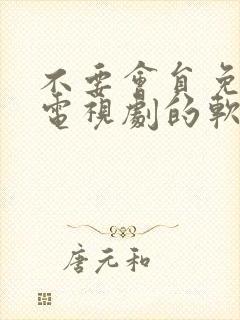 不要會員免
電視劇的軟
唐元和